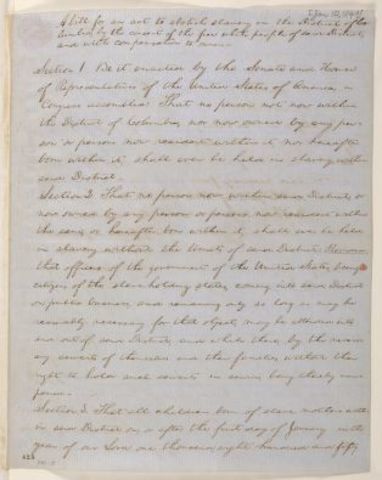 A bill for an act to abolish slavery in the District of Co-
lumbia, by the consent of the free white people of said District,
and with compensation to owners.
Section 1 Be it enacted by the Senate and House
of Representatives of the United States of America, in
Congress assembled: That no person not now within
the District of Columbia, nor now owned by any per-
son or persons now resident within it, nor hereafter
born within it, shall ever be held in slavery within
said District.
Section 2. That no person now within said District, or
now owned by any person or persons now resident within
the same, or hereafter born within it, shall ever be held
in slavery without the limits of said District: Provided,
that officers of the government of the United States, being
citizens of the slave-holding states, coming into said District
on public business, and remaining only so long as may be
reasonably necessary for that object, may be attended into
and out of said District, and while there, by the necess-
ary servants of themselves and their families, without their
right to hold such servants in service, being thereby im-
paired.
Section 3. That all children born of slave mothers with-
in said District on, or after the first day of January in the
year of our Lord one thousand, eight hundred and fifty